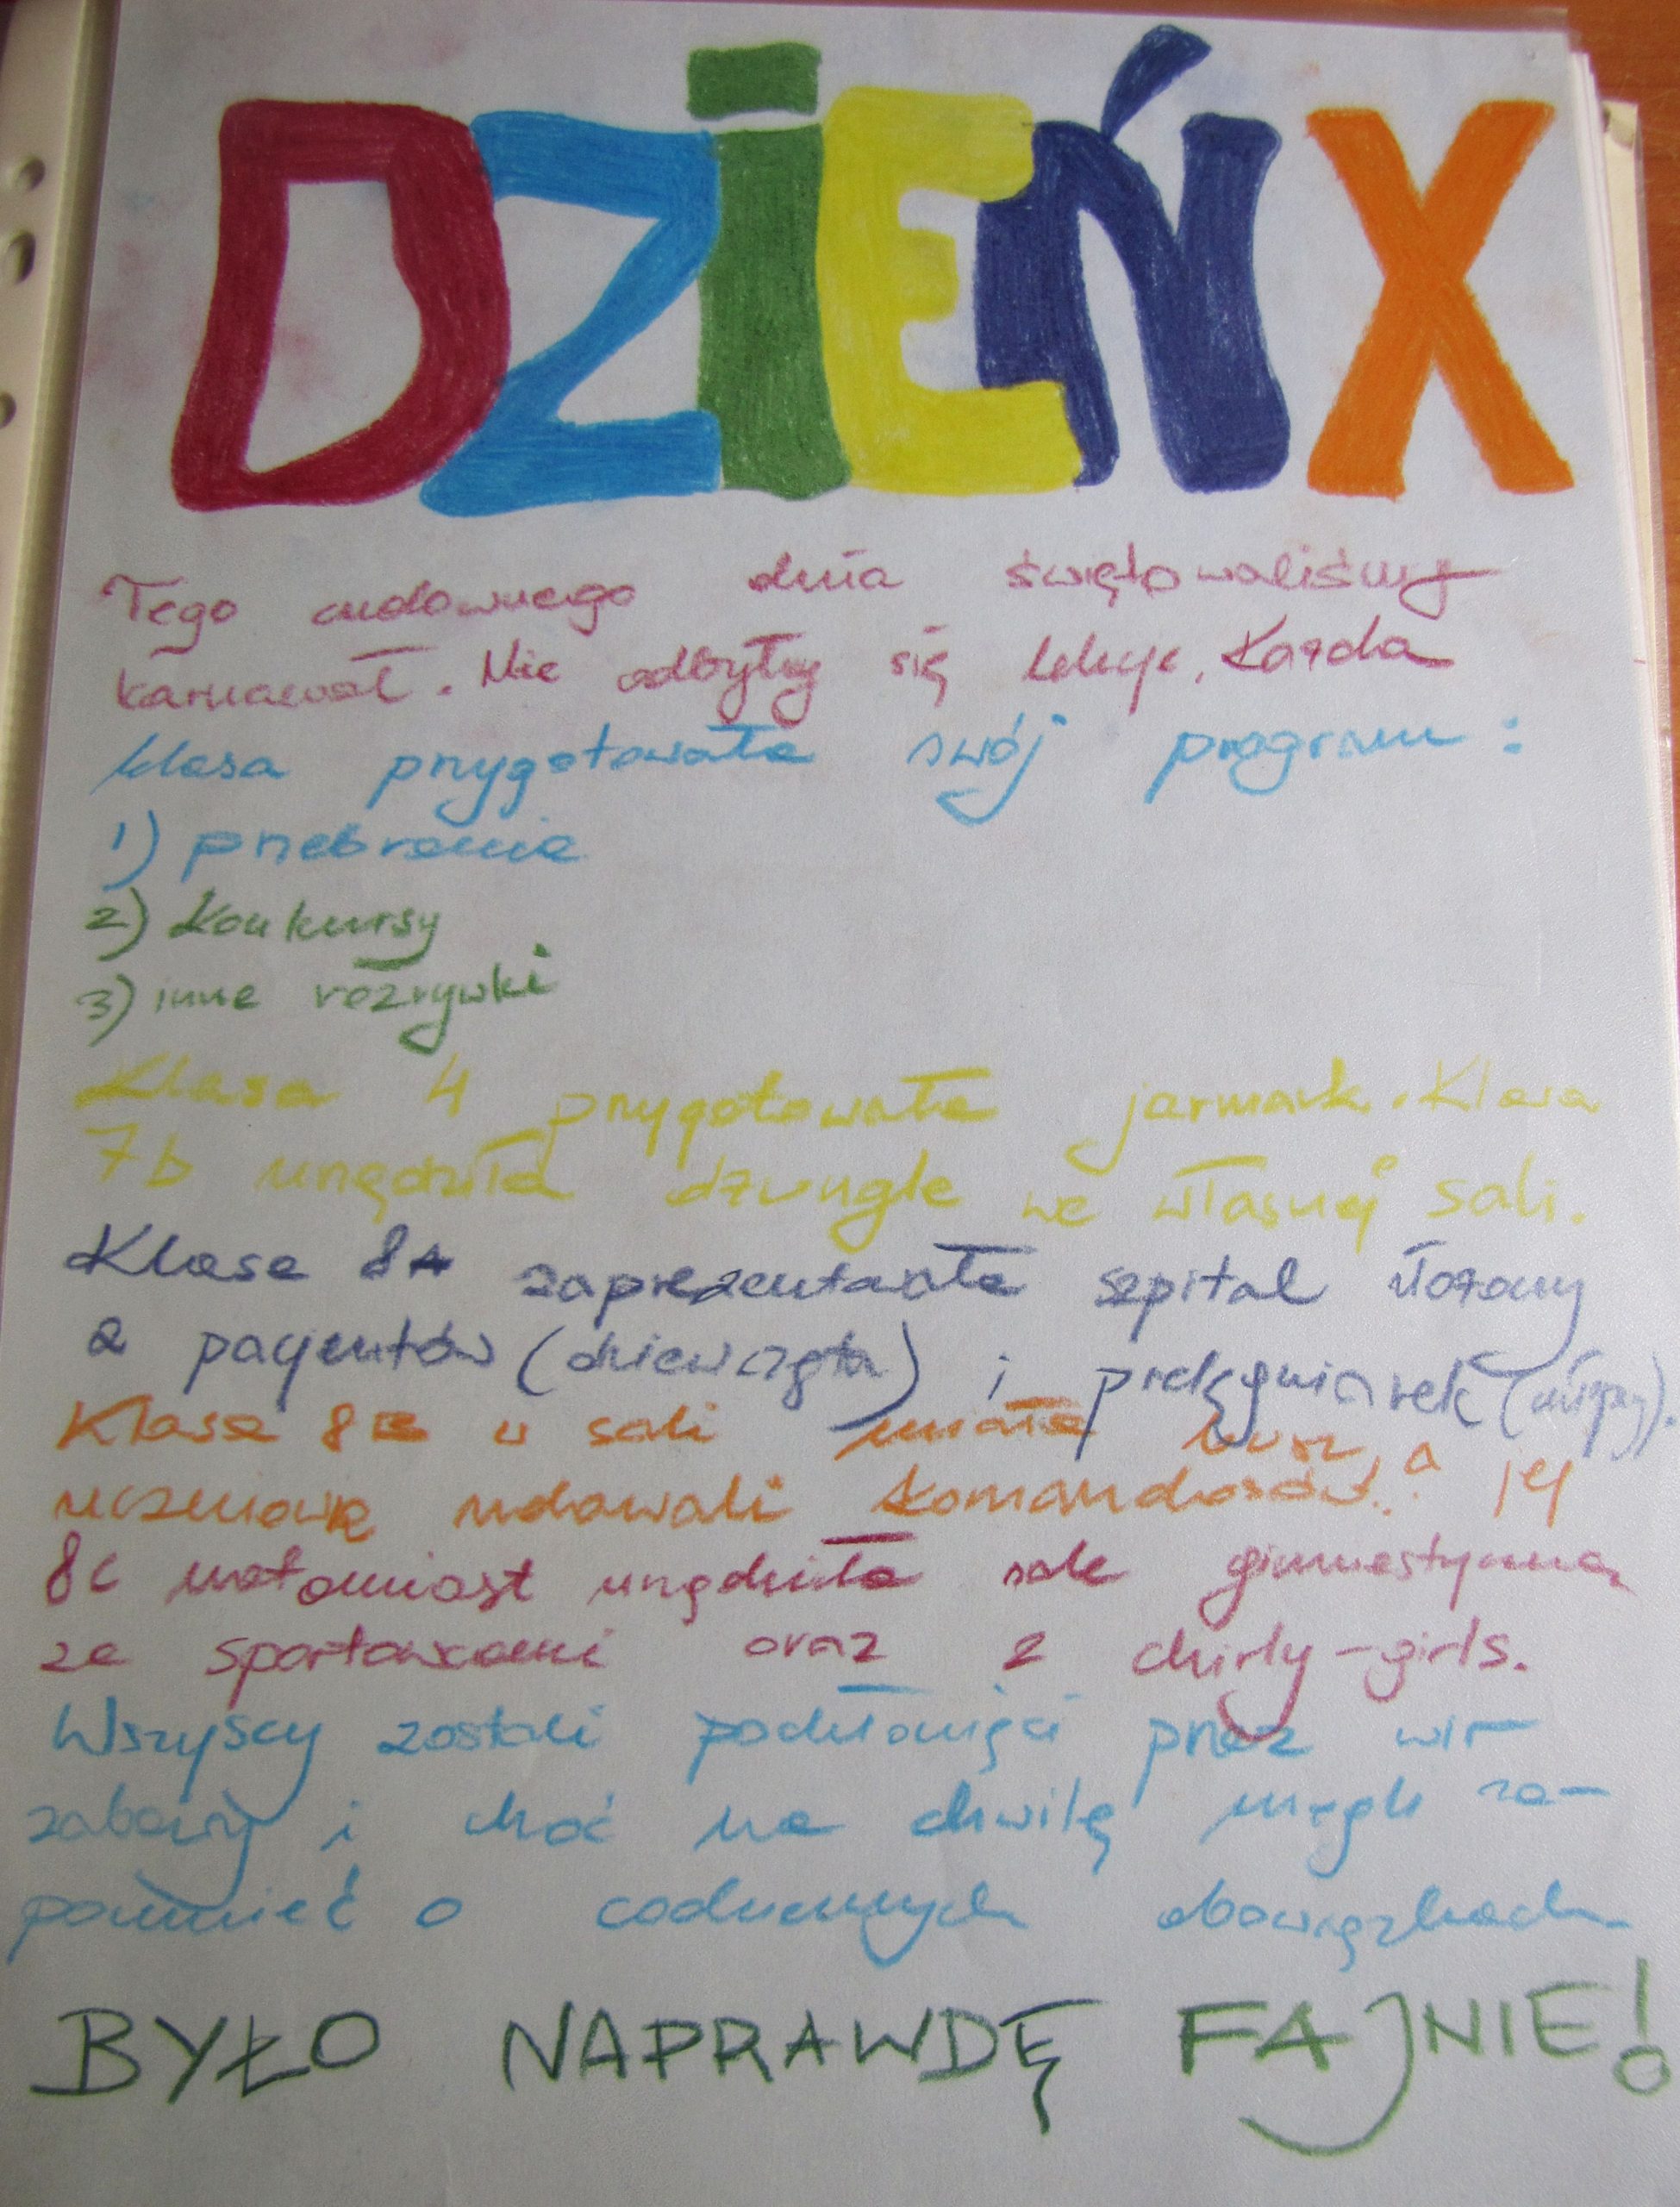 DZIEŃ X
Tego cudownego dnia świętowaliśmy
karnawał. Nie odbyły się lekcje. Każda
klasa przygotowała swój program:
1) przebrania
2) Konkursy
3) inne rozrywki
Klasa 4 przygotowała jarmark. Klasa
7b urządziła dżungle we własnej sali.
Klasa 8A zaprezentowała szpital złożony
z pacjentów (dziewczęta) i pielęgniarek (chłopcy).
Klasa 8B w sali miała busz, a
uczniowie udawali komandosów.
8c natomiast urządziła sale gimnastyczną
ze sportowcami oraz z chirly-girls.
Wszyscy zostali pochłonięci przez wir
zabawy i choć na chwilę mogli za-
pomnieć o codziennych obowiązkach
BYŁO NAPRAWDĘ FAJNIE!